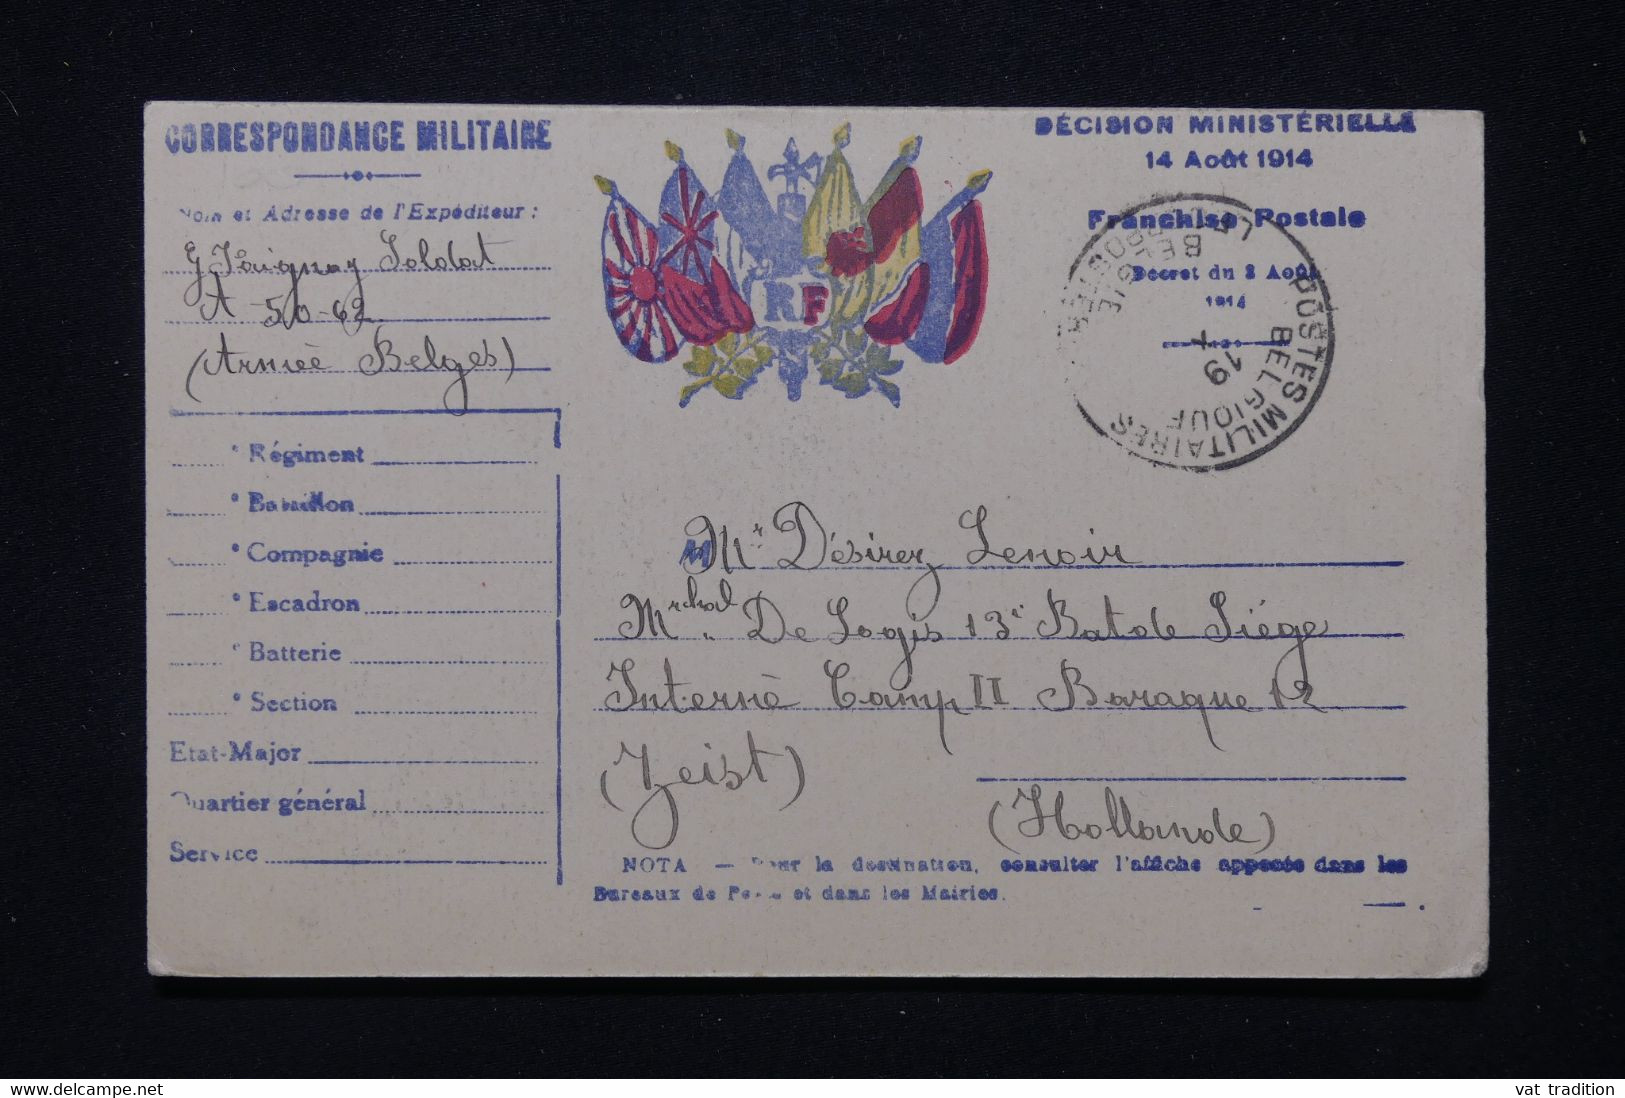 CORRESPONDANCE MILITAIRE
Nom et Adresse de l'Expéditeur :
Soldat
A-50-62
(Armèè Belges)
° Régiment
° Bataillon
° Compagnie
° Escadron
° Batterie
° Section
Etat-Major
Quartier général
Service
RF
DÉCISION MINISTÉRIELLE
14 Août 1914
Franchise Postale
Décret du 3 Août
1914
POSTES MILITAIRES
BELGIQUE
19
X
LEGERPOSTERIJ
BELGIE
M Mr Désirez Lenoir
Mrchal De Logis 13e Bat de Siége
Internè Camp II Baraque 12
(Zeist)
(Hollande)
NOTA — Pour la destination, consulter l'affiche apposée dans les
Bureaux de Poste et dans les Mairies.
vat tradition